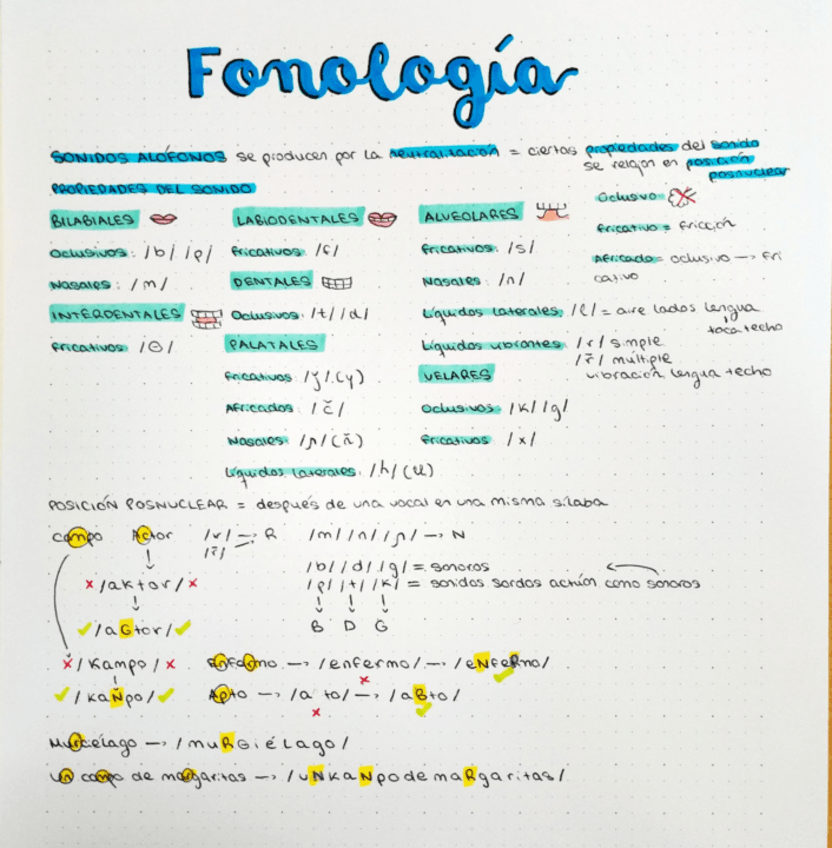 Fonología
SONIDOS ALÓFONOS se producen por la neutralización = ciertas propiedades del sonido
se relajan en posición
posnuclear
PROPIEDADES DEL SONIDO
BILABIALES
Oclusivos: /b/ /p/
Nasales: /m/
INTERDENTALES
Fricativos /Θ/
LABIODENTALES
Fricativos /f/
DENTALES
Oclusivos: /t/ /d/
PALATALES
Fricativos: /y̌/ (y)
Africados: /č/
Nasales: /ɲ/ (ñ)
Líquidos laterales: /ʎ/ (ll)
ALVEOLARES
Fricativos: /s/
Nasales: /n/
Líquidos laterales: /l/ = aire lados lengua
toca techo
Líquidos vibrantes: /r/ simple
/r̄/ múltiple
vibración lengua techo
VELARES
Oclusivos: /k/ /g/
Fricativos: /x/
Oclusivo =
Fricativo = fricción
Africado = oclusivo → fri
cativo
POSICIÓN POSNUCLEAR = después de una vocal en una misma sílaba
campo Actor /r/ → R /m/ /n/ /ɲ/ → N
/r̄/
/b/ /d/ /g/ = sonoros
x /aktor/ x /p/ /t/ /k/ = sonidos sordos actúan como sonoros
B D G
/aGtor/
x /kampo/ x Enfermo → /enfermo/ → /eNfeRmo/
/kaNpo/ Apto → /a to/ → /aBto/
Murciélago → /muRΘiélago/
Un campo de margaritas → /uNkaNpodemaRgaritas/